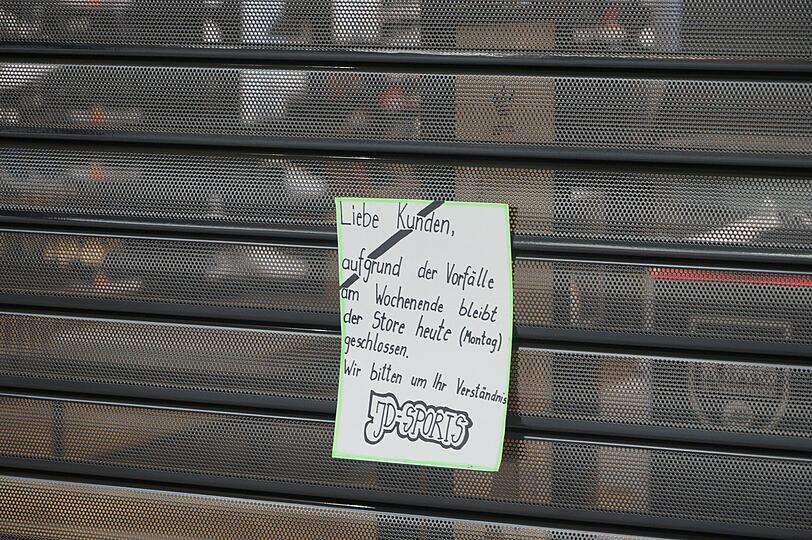 Liebe Kunden,
aufgrund der Vorfälle
am Wochenende bleibt
der Store heute (Montag)
geschlossen.
Wir bitten um Ihr Verständnis
JD-SPORTS